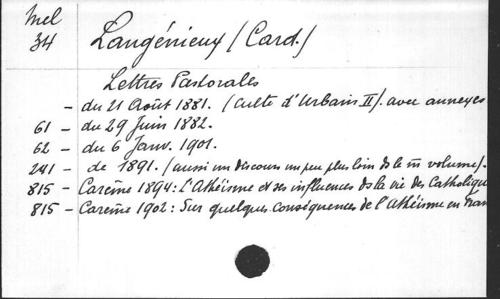 Mel
34
Langénieux (Card.)
Lettres Pastorales
– du 21 Août 1881. (Culte d'Urbain II). avec annexes
61 – du 29 Juin 1882.
62 – du 6 Janv. 1901.
241 – de 1891. (aussi un discours un peu plus loin ds le m̄ volume).
815 – Carême 1894: L'Athéisme et ses influences ds la vie des Catholique
815 – Carême 1902: Sur quelques conséquences de l'Athéisme en Fran